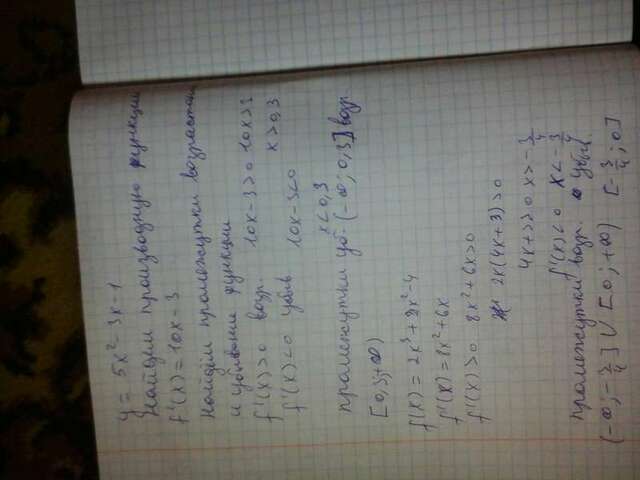 y = 5x² - 3x - 1
Найдём производную функции
f'(x) = 10x - 3
Найдём промежутки возрастан
и убывания функции
f'(x) > 0 возр. 10x - 3 > 0 10x > 3
x > 0,3
f'(x) < 0 убыв 10x - 3 < 0
x < 0,3
промежутки уб. (-∞; 0,3] возр.
[0,3; +∞)
f(x) = 2x³ + 3x² - 4
f'(x) = 8x² + 6x
f'(x) > 0 8x² + 6x > 0
2x(4x + 3) > 0
4x + 3 > 0 x > -3/4
f'(x) < 0 x < -3/4
промежутки возр. убыв.
(-∞; -3/4] ∪ [0; +∞) [-3/4; 0]